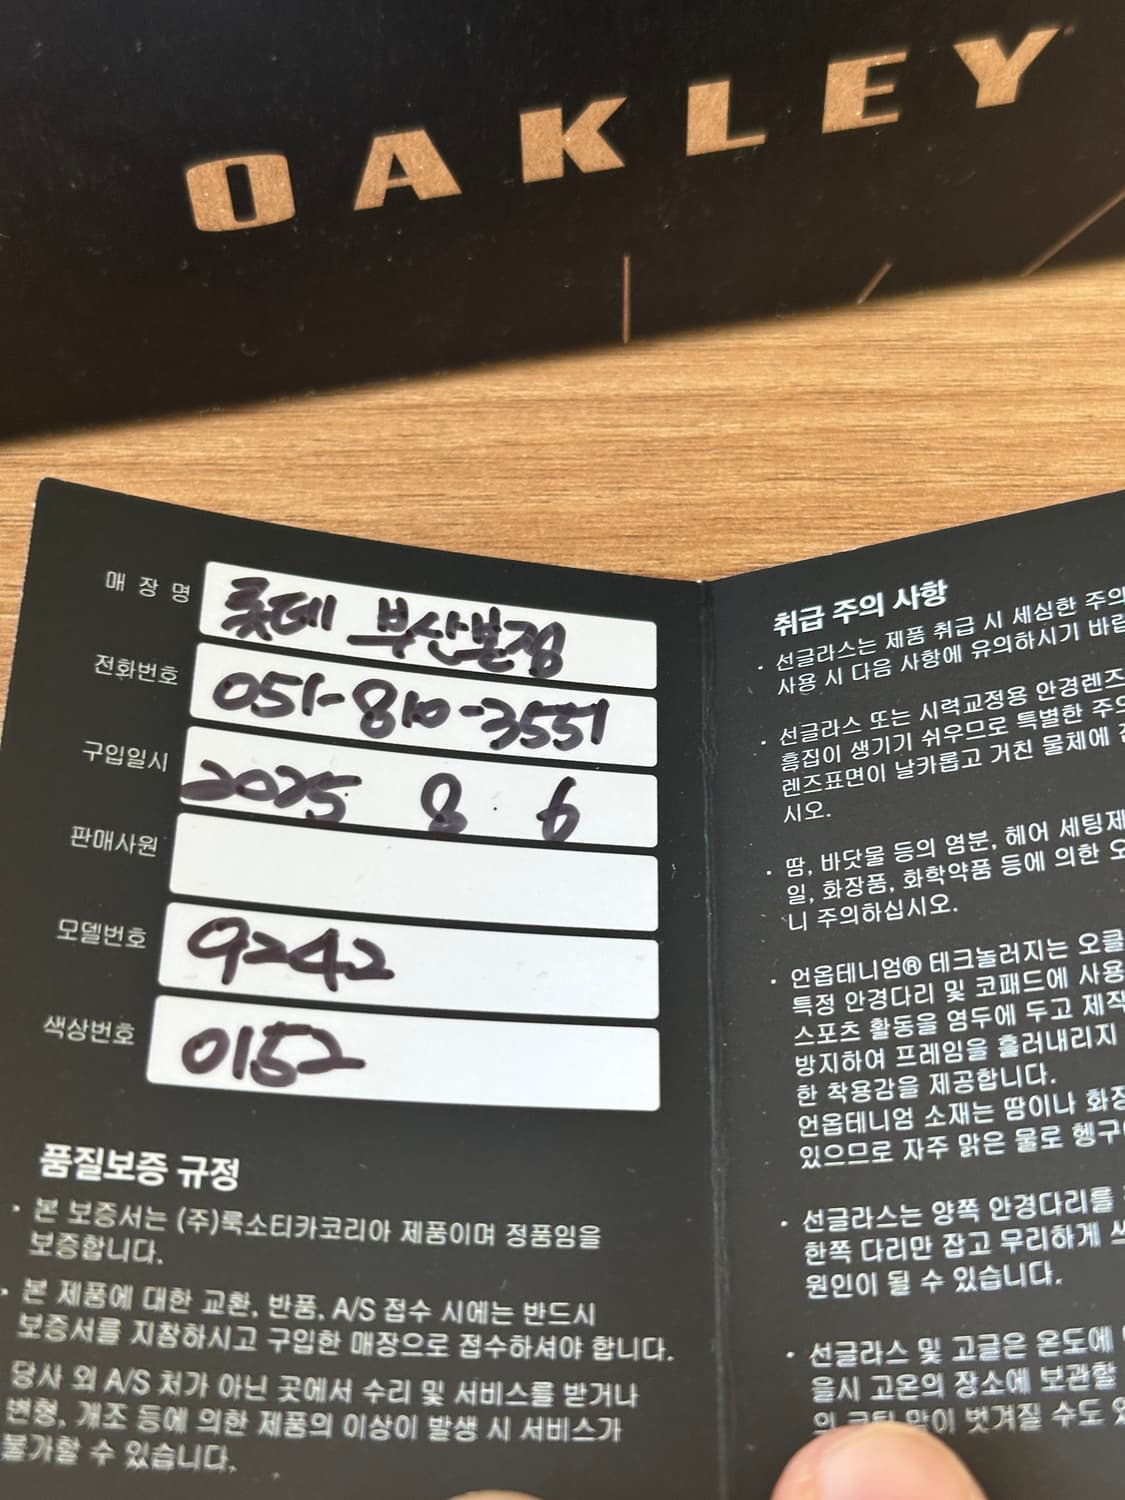 OAKLEY
매장명 롯데 부산본점
전화번호 051-810-3551
구입일시 2025 8 6
판매사원
모델번호 9242
색상번호 0152
품질보증 규정
· 본 보증서는 (주)룩소티카코리아 제품이며 정품임을
보증합니다.
· 본 제품에 대한 교환, 반품, A/S 접수 시에는 반드시
보증서를 지참하시고 구입한 매장으로 접수하셔야 합니다.
당사 외 A/S 처가 아닌 곳에서 수리 및 서비스를 받거나
변형, 개조 등에 의한 제품의 이상이 발생 시 서비스가
불가할 수 있습니다.
취급 주의 사항
· 선글라스는 제품 취급 시 세심한 주의
사용 시 다음 사항에 유의하시기 바랍
· 선글라스 또는 시력교정용 안경렌즈
흠집이 생기기 쉬우므로 특별한 주의
렌즈표면이 날카롭고 거친 물체에
시오.
· 땀, 바닷물 등의 염분, 헤어 세팅제
일, 화장품, 화학약품 등에 의한 오
니 주의하십시오.
· 언옵테니엄® 테크놀러지는 오클
특정 안경다리 및 코패드에 사용
스포츠 활동을 염두에 두고 제작
방지하여 프레임을 흘러내리지
한 착용감을 제공합니다.
언옵테니엄 소재는 땀이나 화장
있으므로 자주 맑은 물로 헹구
· 선글라스는 양쪽 안경다리를
한쪽 다리만 잡고 무리하게 쓰
원인이 될 수 있습니다.
· 선글라스 및 고글은 온도에
을시 고온의 장소에 보관할
의 코팅 막이 벗겨질 수도 있